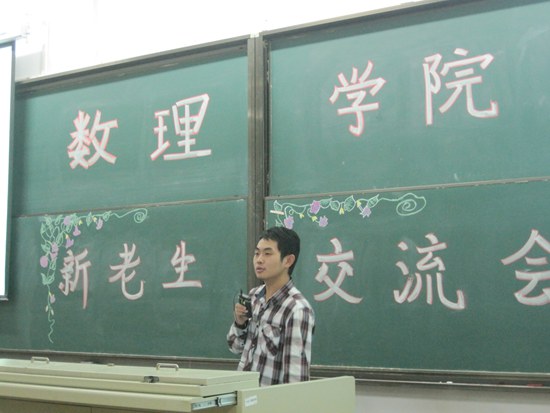 数理学院
新老生交流会